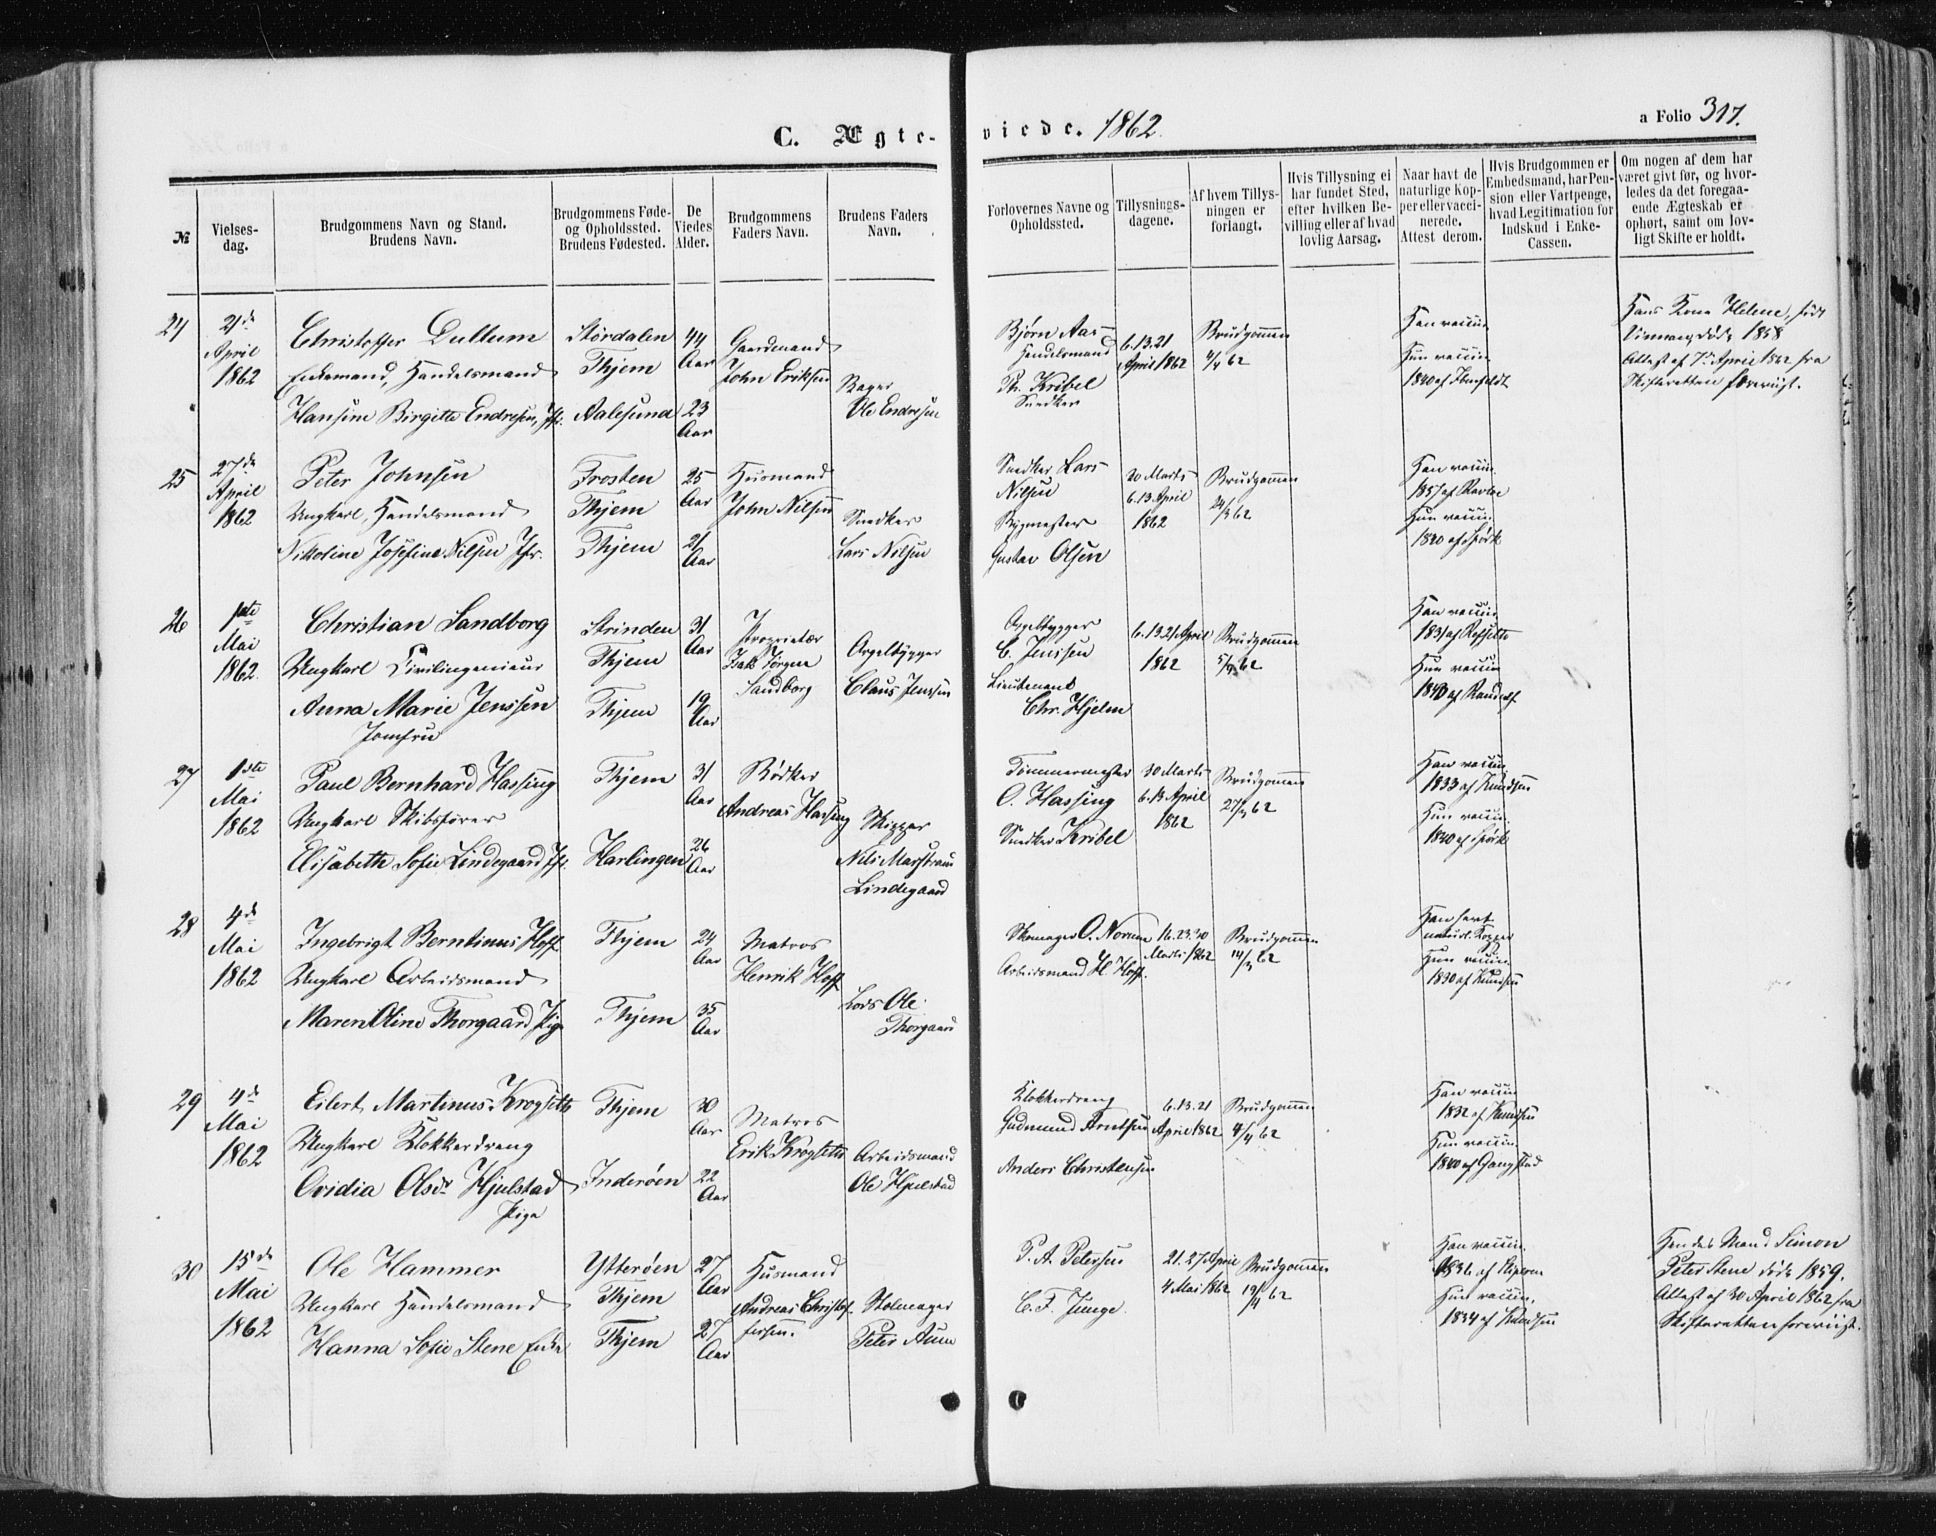 C. Ægte-
viede. 1862.
a Folio 317.
№
Vielses-
dag.
Brudgommens Navn og Stand.
Brudens Navn.
Brudgommens Føde-
og Opholdssted.
Brudens Fødested.
De
Viedes
Alder.
Brudgommens
Faders Navn.
Brudens Faders
Navn.
Forlovernes Navne og
Opholdssted.
Tillysnings-
dagene.
Af hvem Tillys-
ningen er
forlangt.
Hvis Tillysning ei
har fundet Sted,
efter hvilken Be-
villing eller af hvad
lovlig Aarsag.
Naar havt de
naturlige Kop-
per eller vacci-
nerede.
Attest derom.
Hvis Brudgommen er
Embedsmand, har Pen-
sion eller Vartpenge,
hvad Legitimation for
Indskud i Enke-
Cassen.
Om nogen af dem har
været givt før, og hvor-
ledes da det foregaa-
ende Ægteskab er
ophørt, samt om lov-
ligt Skifte er holdt.
24
21de
April
1862
Christoffer Dullum
Enkemand, Handelsmand
Hansine Birgitte Endresen, Jfr.
Størdalen
Thjem
Aalesund
44
Aar
23
Aar
Gaardmand
John Eriksen
Bager
Ole Endresen
Bjørn Aas
Handelsmand
Th. Kribel
Snedker
6.13.21
April 1862
Brudgommen
4/4 62
Han vaccin
Hun vaccin
1840 af
Hans Kone Helene, født
døde 1858
Attest af 7de April 1862 fra
Skifteretten
25
27de
April
1862
Peter Johnsen
Ungkarl, Handelsmand
Nikoline Josefine Nilsen Jfr.
Frosten
Thjem
Thjem
25
Aar
21
Aar
Husmand
John Nilsen
Snedker
Lars Nilsen
Snedker Lars
Nilsen
Bygmester
Gustav Olsen
30 Marts
6.13 April
1862
Brudgommen
24/3 62
Han vaccin.
1837 af
Hun vaccin
1840 af Hørk
26
1ste
Mai
1862.
Christian Sandborg
Ungkarl Civilingenieur
Anna Marie Jenssen
Jomfru
Strinden
Thjem
Thjem
31
Aar
19
Aar
Proprietær
Isak Jørgen
Sandborg
Orgelbygger
Claus Jenssen
Orgelbygger
C. Jenssen
Lieutenant
Chr. Hjelm
6.13.21 April
1862
Brudgommen
5/4 62
Han vaccin
1831 af
Hun vaccin
1843 af
27
1ste
Mai
1862
Paul Bernhard Hassing
Ungkarl Skibsfører
Elisabeth Sofie Lindegaard Jfr.
Thjem
Harlingen
31
Aar
26
Aar
Bødker
Andreas Hassing
Skipper
Nils Marstrann
Lindegaard
Tømmermester
O. Hassing
Snedker Kribel
30 Marts
6.13 April
1862
Brudgommen
27/3 62
Han vaccin
1833 af Knudsen
Hun vaccin.
1840 af Hørk
28
4de
Mai
1862
Ingebrigt Berntinus Hoff
Ungkarl Arbeidsmand
Maren Oline Thorgaard Pige
Thjem
Thjem
24
Aar
35
Aar
Matros
Henrik Hoff
Lods Ole
Thorgaard
Skomager O. Norum
Arbeidsmand H. Hoff.
16.23.30
Marts 1862
Brudgommen
14/3 62
Han havt
naturl. Kopper
Hun vaccin
1830 af Knudsen
29
4de
Mai
1862
Eilert Martinus Krogseth
Ungkarl Klokkerdreng
Ovidia Olsdr Hjulstad
Pige
Thjem
Inderøen
30
Aar
22
Aar
Matros
Erik Krogseth
Arbeidsmand
Ole Hjulstad
Klokkerdreng
Gudmund Arntsen
Anders Christensen
6.13.21
April 1862
Brudgommen
4/4 62
Han vaccin
1832 af Knudsen
Hun vaccin.
1840 af Gangstad
30
15de
Mai
1862
Ole Hammer
Ungkarl Handelsmand
Hanna Sofie Stene Enke
Ytterøen
Thjem
Thjem
27
Aar
27
Aar
Husmand
Andreas Christof-
fersen.
Stolmager
Peter Aune
P. A. Petersen
C. F. Junge.
21.27 April
4 Mai 1862
Brudgommen
19/4 62
Han vaccin.
1836 af
Hun vaccin.
1834 af Knudsen
Hendes Mand Simon
Peter Stene døde 1859.
Attest af 30 April 1862 fra
Skifteretten foreviist.